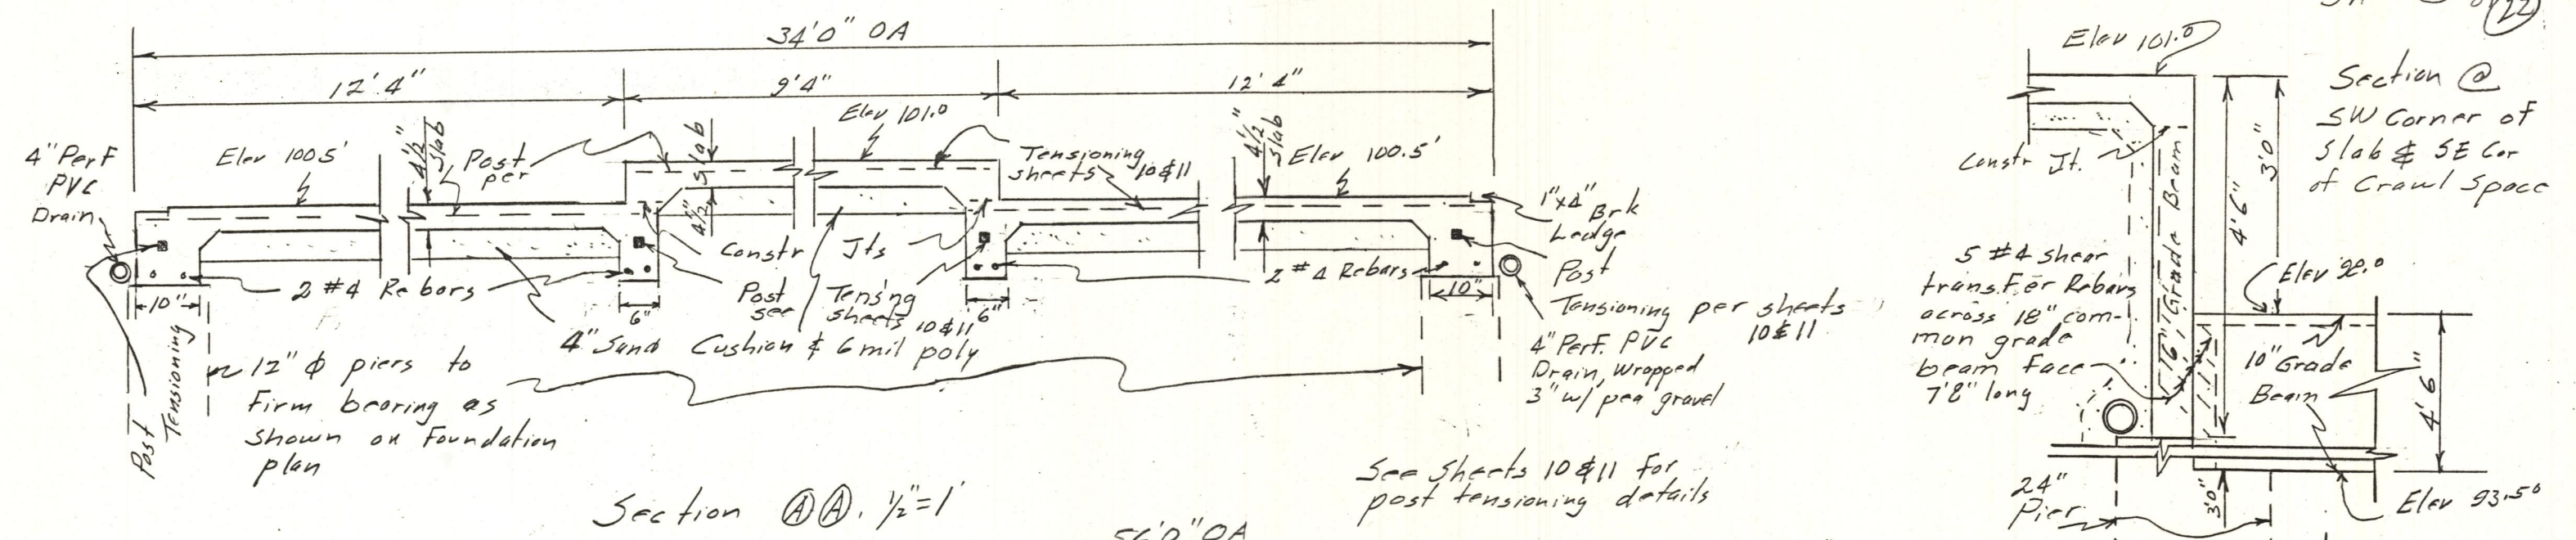 34'0" OA
12'4"
9'4"
12'4"
4" Perf
PVC
Drain
Elev 100.5'
4½"
Slab
Post
per
4½" Slab
Elev 101.0
Tensioning
sheets 10 & 11
4½"
Slab
Elev 100.5'
1"x4" Brk
Ledge
Constr Jts
2 #4 Rebars
2 #4 Rebars
Post
see
Tens'ng
sheets 10 & 11
Post
Tensioning per sheets
10 & 11
10"
6"
6"
10"
4" Sand Cushion & 6 mil poly
Post
Tensioning
12" ϕ piers to
Firm bearing as
shown on Foundation
plan
4" Perf. PVC
Drain, Wrapped
3" w/ pea gravel
Section A A. ½"=1'
See Sheets 10 & 11 for
post tensioning details
56'0" OA
22
Elev 101.0
Section @
SW Corner of
Slab & SE Cor
of Crawl Space
Constr Jt.
16" Grade Beam
4'6"
3'0"
Elev 98.0
5 #4 shear
transfer Rebars
across 18" com-
mon grade
beam face
7'8" long
10" Grade
Beam
4'6"
24"
Pier
3'0"
Elev 93.50